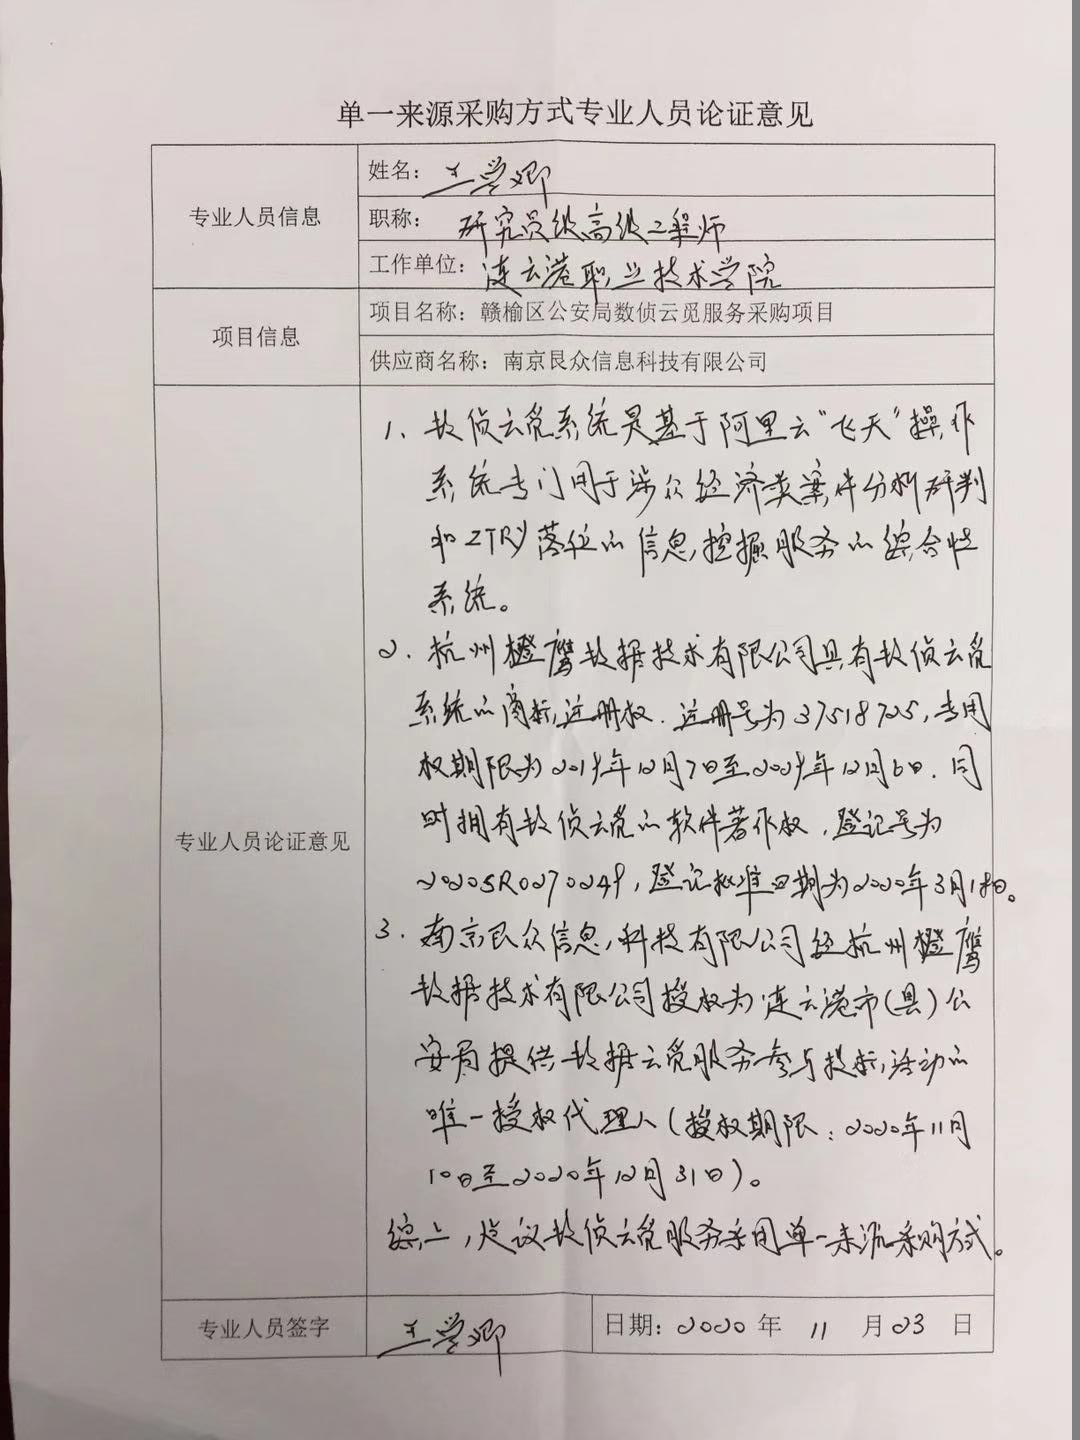 单一来源采购方式专业人员论证意见
专业人员信息
姓名：王学卿
职称：研究员级高级工程师
工作单位：连云港职业技术学院
项目信息
项目名称：赣榆区公安局数侦云觅服务采购项目
供应商名称：南京艮众信息科技有限公司
专业人员论证意见
1、数侦云觅系统是基于阿里云“飞天”操作
系统专门用于涉众经济类案件分析研判
和ZTRY落位的信息挖掘服务的综合性
系统。
2.杭州橙鹰数据技术有限公司具有数侦云觅
系统的商标注册权.注册号为37518725,专用
权期限为2019年12月7日至2029年12月6日.同
时拥有数侦云觅的软件著作权,登记号为
2020SR0270249,登记批准日期为2020年3月18日。
3.南京艮众信息科技有限公司经杭州橙鹰
数据技术有限公司授权为连云港市(县)公
安局提供数据云觅服务参与投标活动的
唯一授权代理人(授权期限:2020年11月
10日至2020年12月31日)。
综上,建议数侦云觅服务采用单一来源采购方式。
专业人员签字
王学卿
日期：2020年11月23日